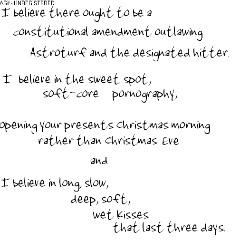 I believe there ought to be a
constitutional amendment outlawing
Astroturf and the designated hitter.
I believe in the sweet spot,
soft-core pornography,
opening your presents Christmas morning
rather than Christmas Eve
and
I believe in long, slow,
deep, soft,
wet kisses
that last three days.